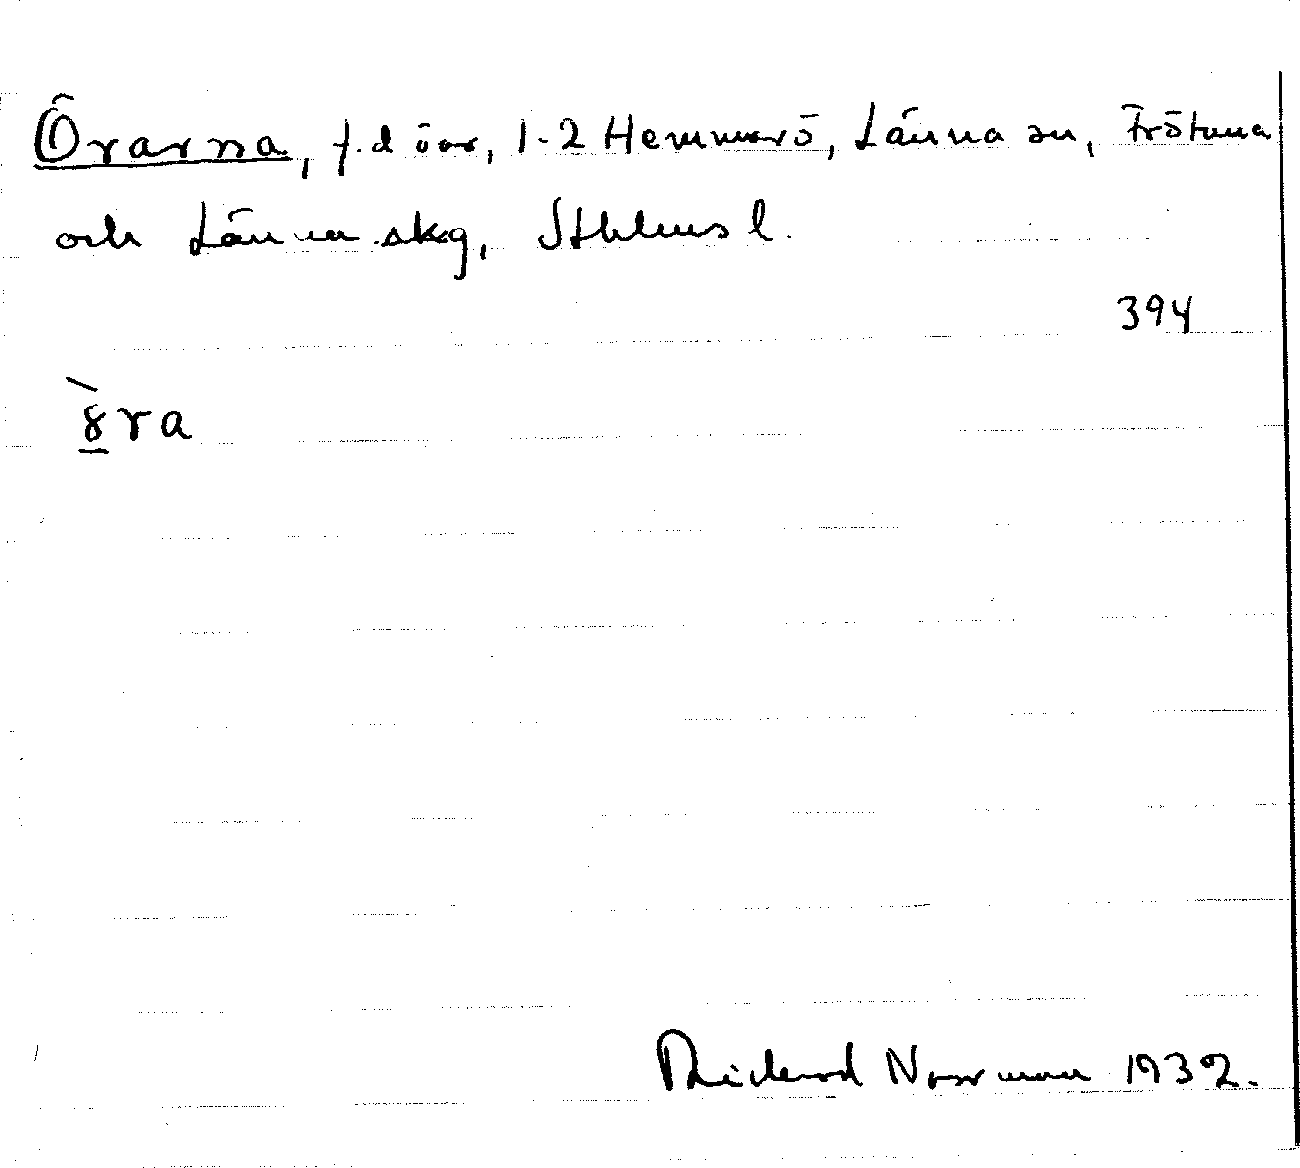 Örarna, f.d öar, 1-2 Hemmarö, Länna sn, Frötuna
och Länna skg, Sthlms l.
394
`8ra
Rickard Norrman 1932.